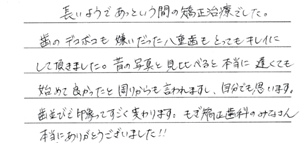 長いようであっという間の矯正治療でした。
歯のデコボコも嫌いだった八重歯もとってもキレイに
して頂きました。昔の写真と見比べると本当に遅くても
始めて良かったと周りからも言われますし、自分でも思います。
歯並びで印象ってすごく変わります。もぎ矯正歯科のみなさん
本当にありがとうございました!!